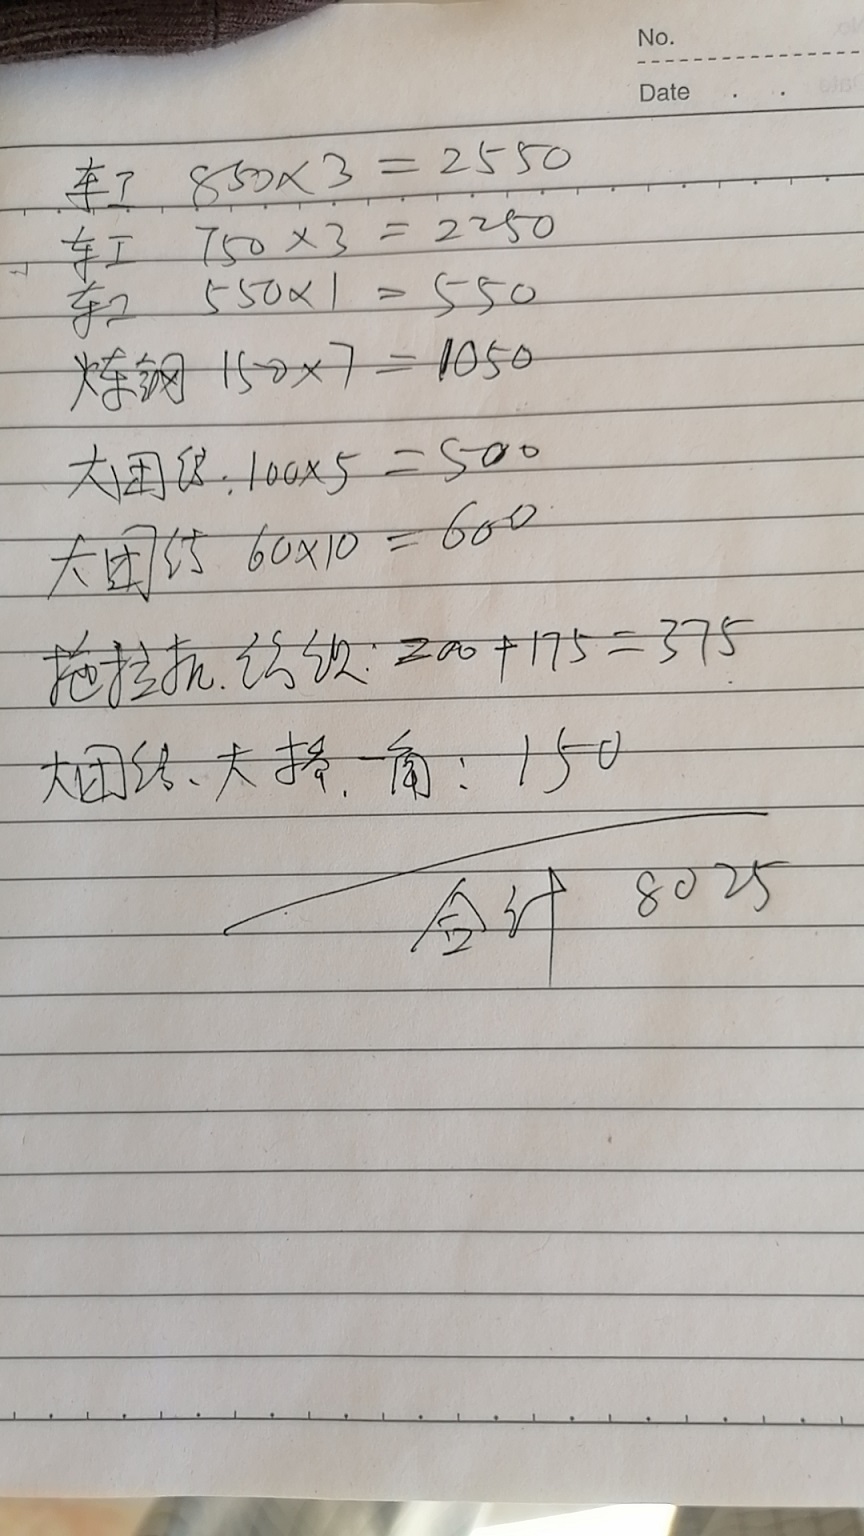 No.
Date
车工 850×3=2550
车工 750×3=2250
车工 550×1=550
炼钢 150×7=1050
大团结.100×5=500
大团结 60×10=600
拖拉机.纺织:200+175=375
大团结、大桥.一角:150
合计 8025